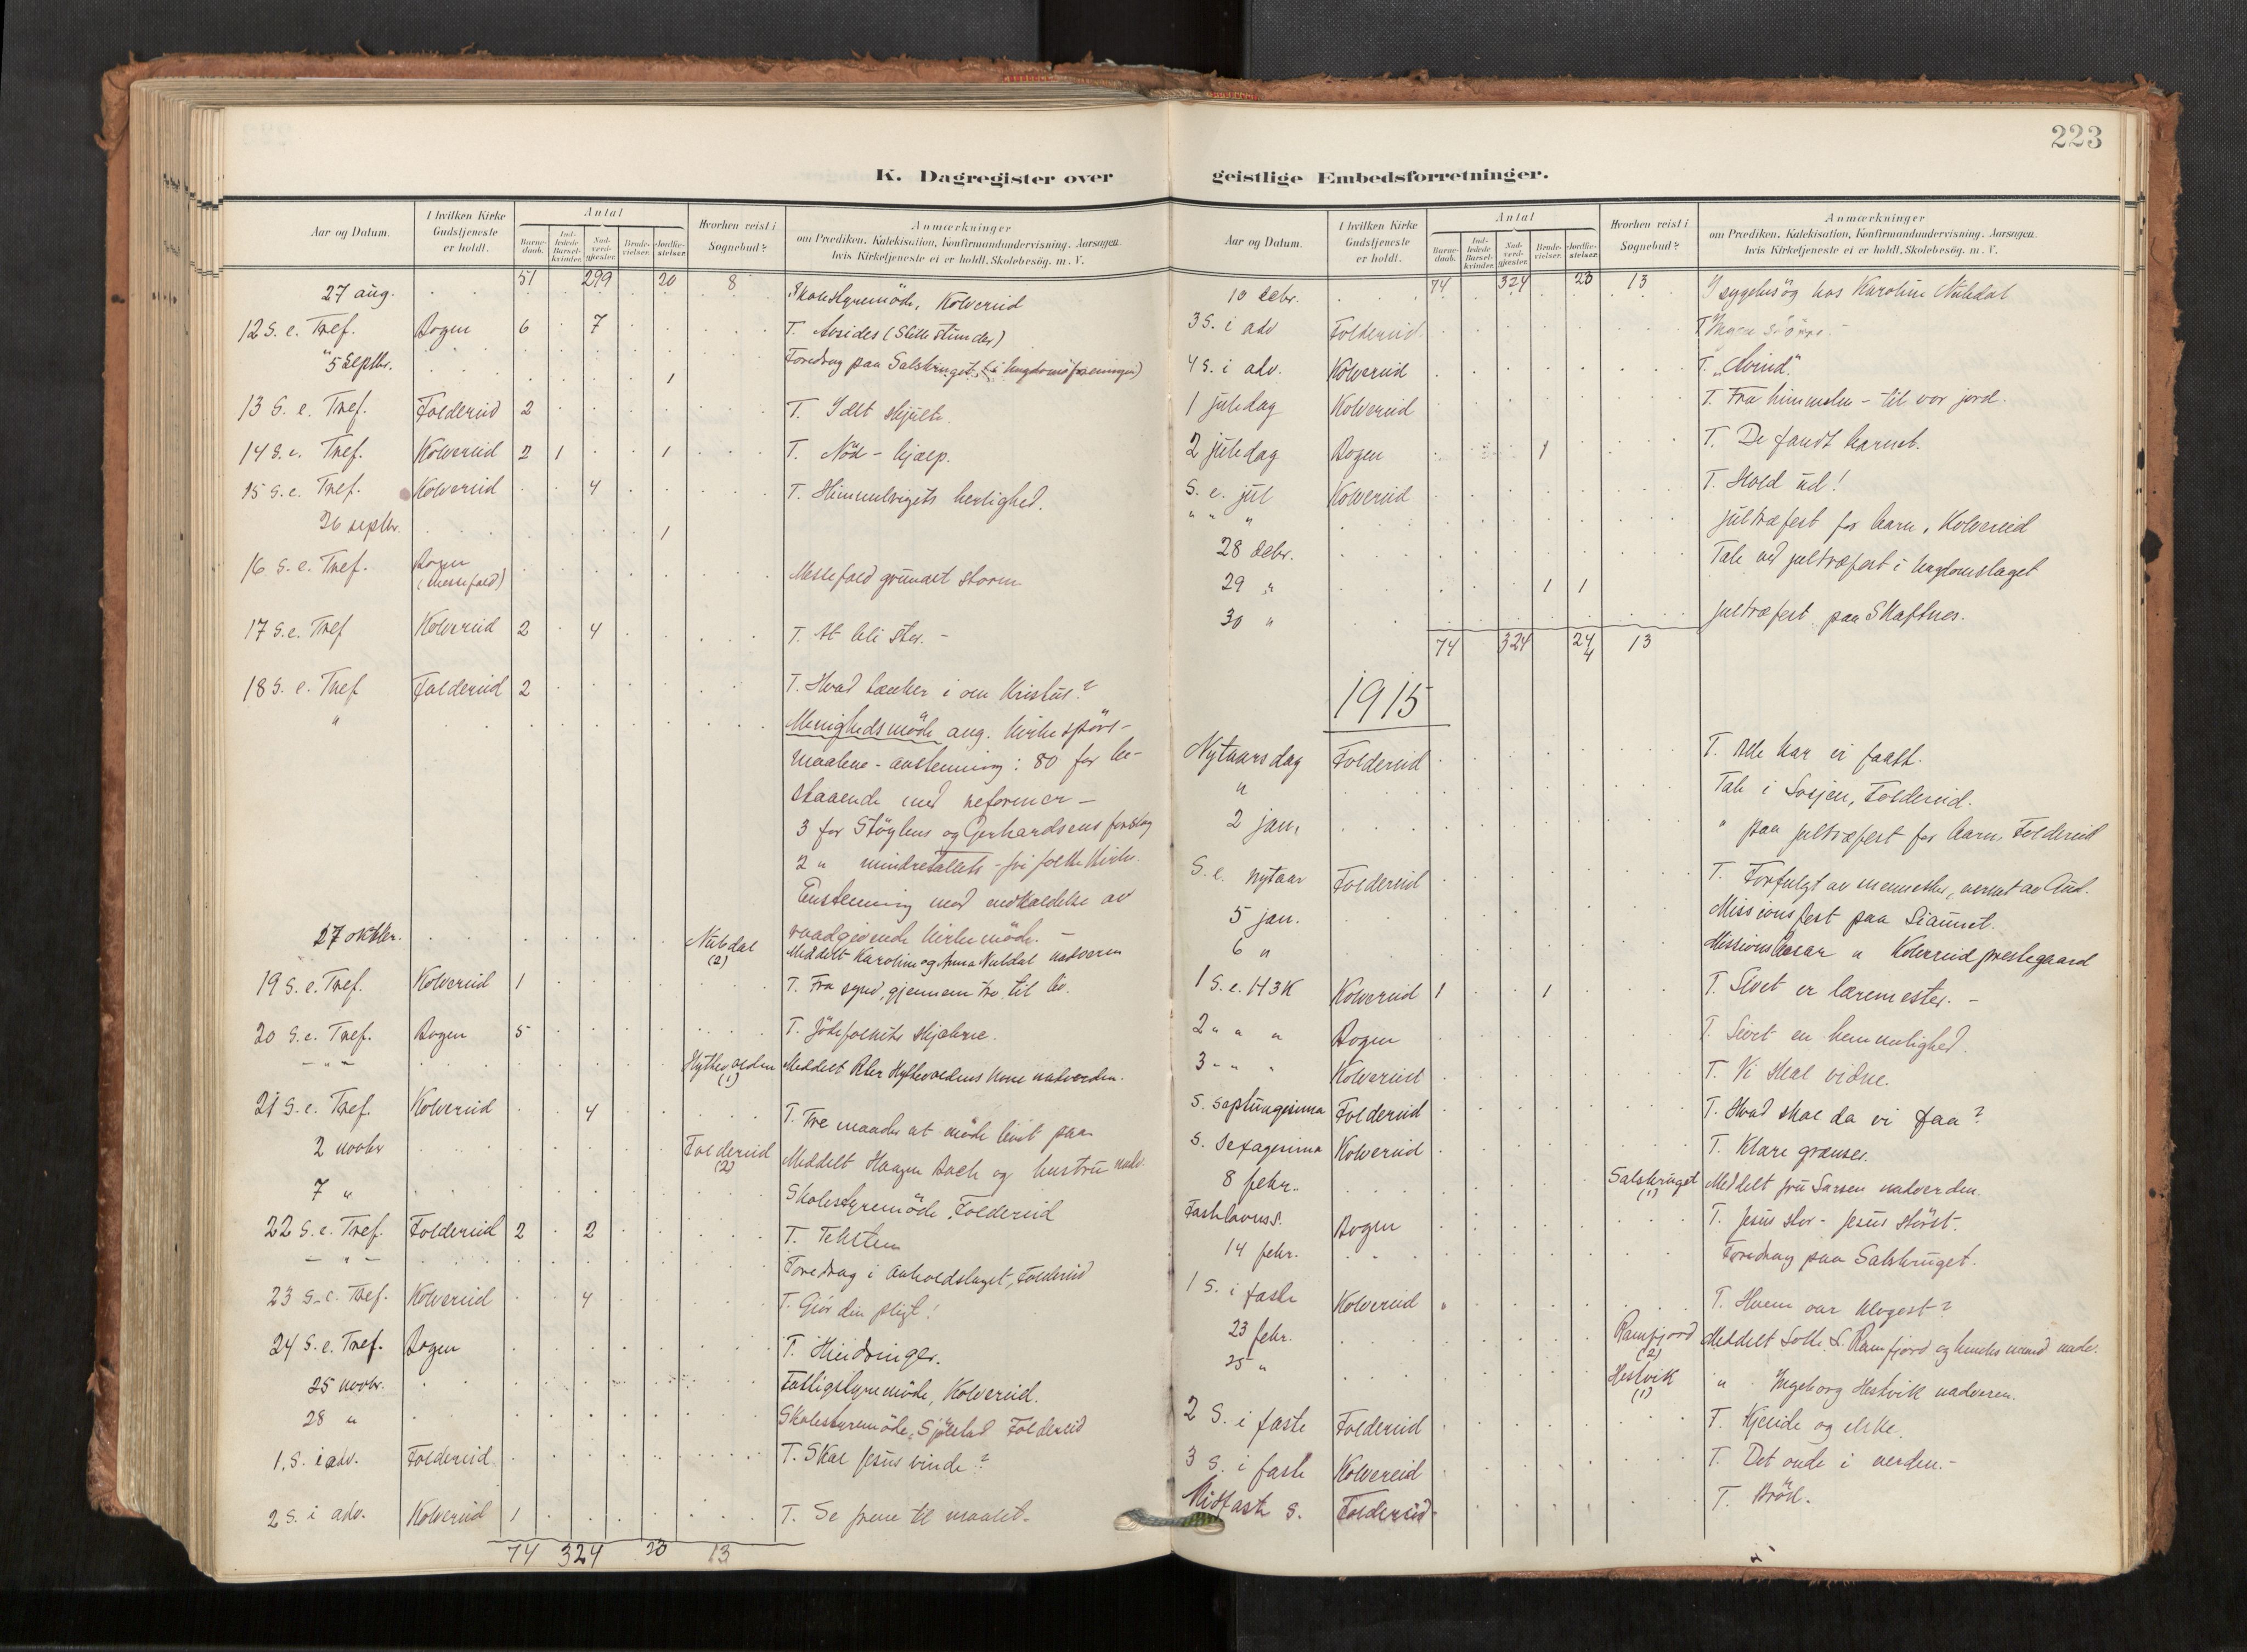 K. Dagregister over
Aar og Datum. | I hvilken Kirke Gudstjeneste er holdt. | Antal | Barne-daab. | Ind-ledede Barsel-kvinder. | Nad-verd-gjester. | Brude-vielser. | Jordfæ-stelser. | Hvorhen reist i Sognebud? | Anmærkninger om Prædiken, Katekisation, Konfirmandundervisning, Aarsagen hvis Kirketjeneste ei er holdt, Skolebesög. m. V.
51 299 20 8
27 aug. Skolestyremöde, Kolvereid
12 S. e. Tref. Bogen 6 7 T. Avsides (Stille stunder)
" Foredrag paa Salsbruget (i ungdomsforeningen)
5 septbr. 1
13 S. e. Tref. Foldereid 2 T. I det skjulte.
14 S. e. Tref. Kolvereid 2 1 1 T. Nöd - hjælp.
15 S. e. Tref. Kolvereid 4 T. Himmelrigets herlighed.
26 septbr. 1
16 S. e. Tref. Bogen (Messefald) Messefald grundet storm
17 S. e. Tref Kolvereid 2 4 T. At bli stor. -
18 S. e. Tref Foldereid 2 T. Hvad tænker i om Kristus?
" Menighedsmöde ang. kirkespörs-
maalene - avstemning: 80 for be-
staaende med reformer -
3 for Støylens og Gerhardsens forslag
2 " mindretallets - fri folkekirke.
Enstemmig med indkaldelse av
raadgivende kirkemöde. -
27 oktbr. Nubdal (2) Meddelt Karoline og Anna Nubdal nadveren
19 S. e. Tref. Kolvereid 1 T. Fra synd, gjennem tro, til liv.
20 S. e. Tref. Bogen 5 T. Jödefolkets skjæbne.
- " - (1) Meddelt Peter kone nadverden.
21 S. e. Tref. Kolvereid 4 T. Tre maader at möde livet paa
2 novbr Foldereid (2) Meddelt Haagen Bach og hustru nadv.
7 " Skolestyremöde, Foldereid
22 S. e. Tref. Foldereid 2 2 T. Teksten
- " - Foredrag i avholdslaget, Foldereid
23 S. e. Tref. Kolvereid 4 T. Gjör din pligt!
24 S. e. Tref. Bogen T. Hindringer.
25 novbr. Fattigstyremöde, Kolvereid.
28 " Skolestyremöde, Sjölstad Foldereid
1. S. i adv. Foldereid T. Skal Jesus vinde?
2 S. i adv. Kolvereid 1 T. Se frem til maalet.
74 324 20 13
223
geistlige Embedsforretninger.
Aar og Datum. | I hvilken Kirke Gudstjeneste er holdt. | Antal | Barne-daab. | Ind-ledede Barsel-kvinder. | Nad-verd-gjester. | Brude-vielser. | Jordfæ-stelser. | Hvorhen reist i Sognebud? | Anmærkninger om Prædiken, Katekisation, Konfirmandundervisning, Aarsagen hvis Kirketjeneste ei er holdt, Skolebesög. m. V.
74 324 23 13
10 debr. I sygebesög hos Karoline Nubdal
3 S. i adv Foldereid T. Ingen större. -
4 S. i adv. Kolvereid T.
1 juledag Kolvereid T. Fra himmelen - til vor jord.
2 juledag Bogen 1 T. De fandt barnet.
S. e. jul Kolvereid T. Hold ud!
" " " Juletræfest for barn, Kolvereid
28 debr. Tale ved juletræfest i ungdomslaget
29 " 1 1
30 " Juletræfest paa Skaftnes.
74 324 24 4 13
1915
Nytaarsdag Foldereid T. Alle har vi faatt.
" Tale i Foldereid.
2 jan. " paa juletræfest for barn, Foldereid
S. e. nytaar Foldereid T. Forfulgt av mennesker, vernet av Gud.
5 jan. Missionsfest paa
6 " Missionsbasar " Kolvereid prestegaard
1 S. e. H3K Kolvereid 1 1 T. Livet er læremester. -
2 " " " Bogen T. Livet en hemmelighed.
3 - " " Kolvereid T. Vi skal vidne.
S. Septuagesima Foldereid T. Hvad skal da vi faa?
S. Sexagesima Kolvereid T. Klare grænser.
8 febr. Salsbruget (1) Meddelt fru Larsen nadverden.
Fastelavns S. Bogen T. Jesus stor - Jesus störst.
14 febr. Foredrag paa Salsbruget.
1 S. i faste Kolvereid T. Hvem var klogest?
23 febr. Ramfjord (2) Meddelt Ramfjord og hendes mand nadv.
25 " Hestvik (1) " Ingeborg Hestvik nadveren.
2 S. i faste Foldereid T. Kjende og elske.
3 S. i faste Kolvereid T. Det onde i verden. -
Midfaste S. Foldereid T. Bröd.